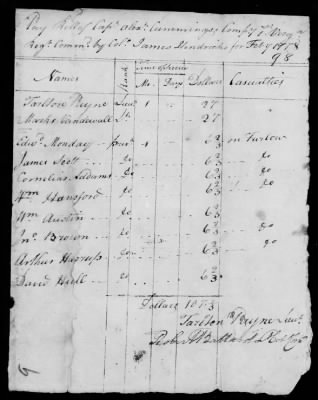 Pay Roll of Capt. Alexr. Cummings Compy 1st Virga
Regt. Commd. by Col. James Hendricks for Feby 1778
98
Names Rank Time of Service Dollars Casualties
Mo. Days
Tarlton Payne Lieut 1 27
Marks Vandewall Do 27
Edwd. Monday privt 1 6 2/3 on Furlow
James Scott Do 6 2/3 Do
Cornelius Addams Do 6 2/3 Do
Wm Hansford Do 6 2/3 Do
Wm Austin Do 6 2/3 Do
Jno. Brown Do 6 2/3 Do
Arthur Do 6 2/3
David Hull Do 6 2/3
Dollars 107 1/3
Tarlton Payne Lieut.
Robert Ballard Lt Col